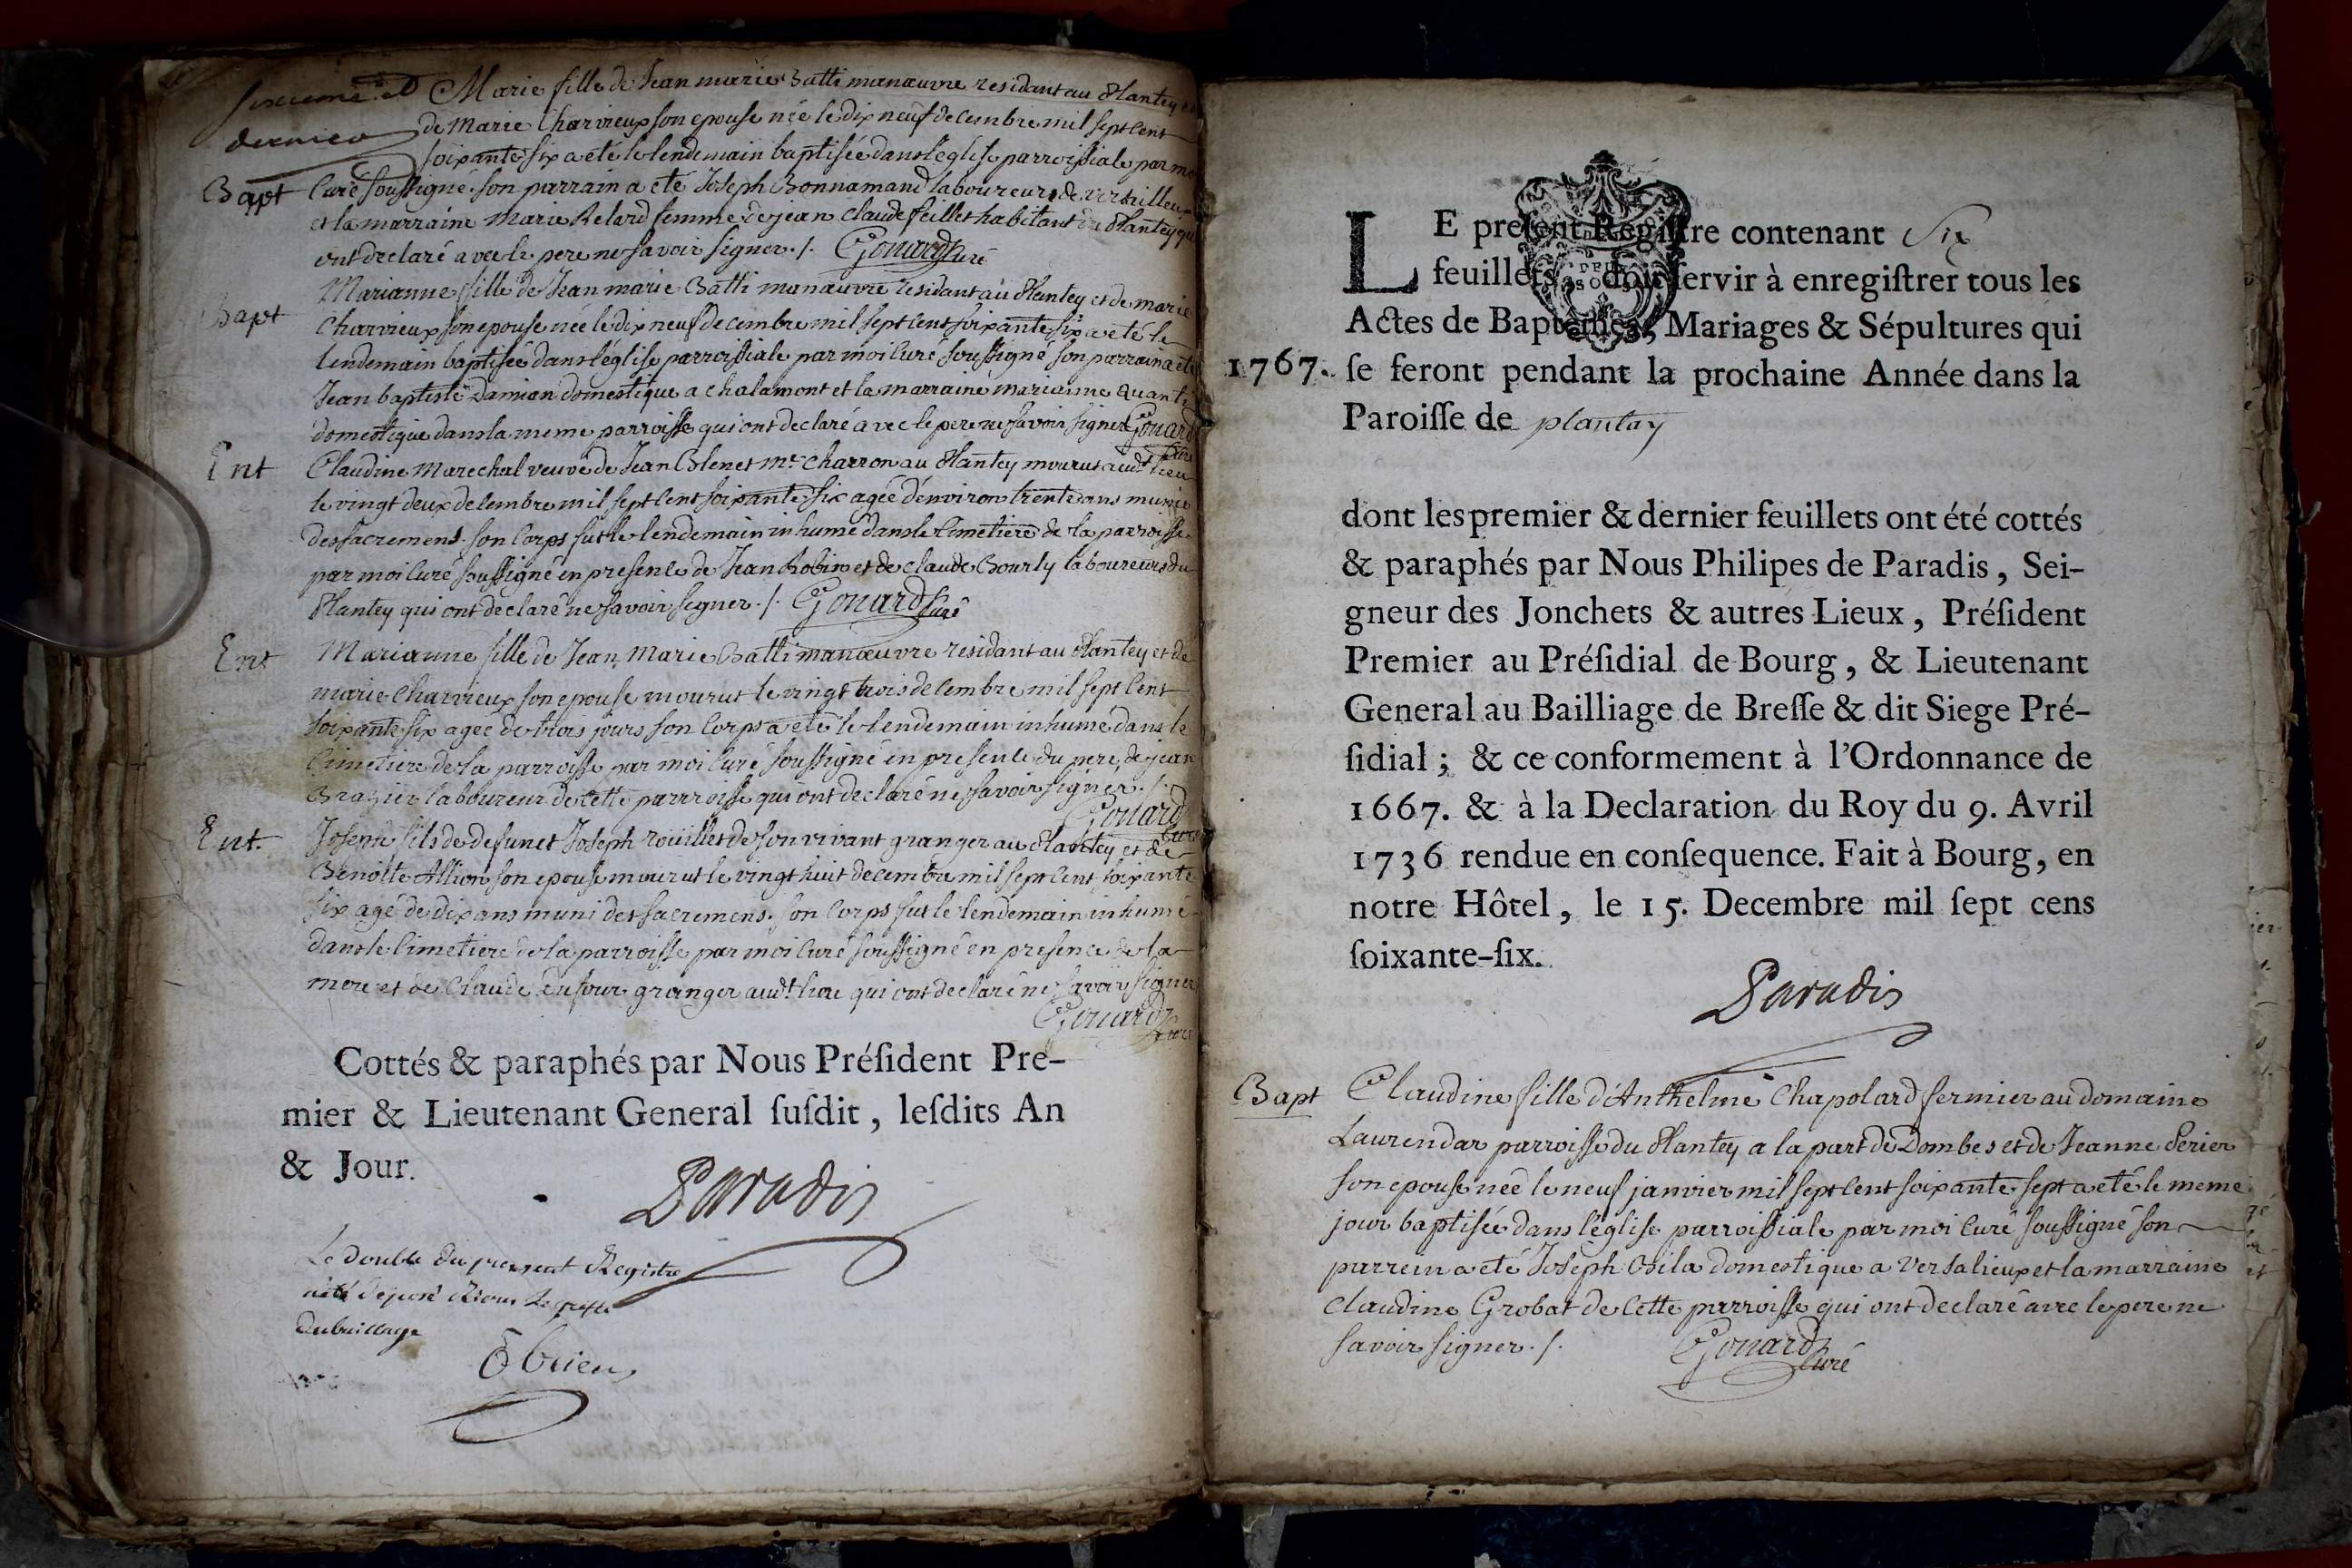 sixieme et
dernier
Bapt
Marie fille de Jean marie Batti manœuvre residant au Plantey et
de Marie Charvieux son epouse née le dix neuf decembre mil sept cent
soixante six a eté le lendemain baptisée dans l'église parroissiale par moi
Curé soussigné. son parrain a eté Joseph Bonnamand laboureur de versailleux
et la marraine Marie Relard femme de jean Claude feillet habitant du Plantey qui
ont declaré avec le pere ne savoir signer ./. Gouard Curé
Bapt
Marianne fille de Jean marie Batti manœuvre residant au Plantey et de marie
Charvieux son epouse née le dix neuf decembre mil sept cent soixante six a eté le
lendemain baptisée dans l'église parroissiale par moi Curé soussigné son parrain a eté
Jean baptiste Damian domestique a chalamont et la marraine marianne Quanti
domestique dans la meme parroisse qui ont declaré avec le pere ne savoir signer Gouard
Curé
Ent
Claudine Marechal veuve de Jean Colenet Me Charron au Plantey mourut audt lieu
le vingt deux decembre mil sept cent soixante six agée d'environ trente ans munie
des sacremens. son Corps fut le lendemain inhumé dans le Cimetiere de la parroisse
par moi Curé soussigné en presence de Jean Robin et de Claude Bourly laboureurs du
Plantey qui ont declaré ne savoir signer ./. Gouard Curé
Ent
Marianne fille de Jean Marie Batti manœuvre residant au Plantey et de
marie Charvieux son epouse mourut le vingt trois decembre mil sept cent
soixante six agée de trois jours son Corps a eté le lendemain inhumé dans le
Cimetiere de la parroisse par moi Curé soussigné en presence du pere, de jean
Brazier laboureur de cette parrroisse qui ont declaré ne savoir signer ./.
Gouard
Curé
Ent.
Joseph fils de defunct Joseph rouillet de son vivant granger au Plantey et de
Benoîte Allion son epouse mourut le vingt huit decembre mil sept cent soixante
six agé de dix ans muni des sacremens. son Corps fut le lendemain inhumé
dans le Cimetiere de la parroisse par moi Curé soussigné en presence de la
mere et de Claude dufour granger audt lieu qui ont declaré ne savoir signer
Gouard Curé
Cottés & paraphés par Nous Préſident Pre-
mier & Lieutenant General ſuſdit, leſdits An
& Jour.
Paradis
Le double du present Registre
a été deposé Riere Le greffe
Du bailliage
Obrien
LE preſent Regiſtre contenant Six
feuillets, doit ſervir à enregiſtrer tous les
Actes de Baptêmes, Mariages & Sépultures qui
1767. ſe feront pendant la prochaine Année dans la
Paroiſſe de plantay
dont les premier & dernier feuillets ont été cottés
& paraphés par Nous Philipes de Paradis, Sei-
gneur des Jonchets & autres Lieux, Préſident
Premier au Préſidial de Bourg, & Lieutenant
General au Bailliage de Breſſe & dit Siege Pré-
ſidial; & ce conformement à l'Ordonnance de
1667. & à la Declaration du Roy du 9. Avril
1736 rendue en conſequence. Fait à Bourg, en
notre Hôtel, le 15. Decembre mil ſept cens
ſoixante-ſix.
Paradis
Bapt
Claudine fille d'Anthelme Chapolard fermier au domaine
Laurendar parroisse du Plantey a la part de Dombes et de Jeanne Perier
son epouse née le neuf janvier mil sept cent soixante sept a eté le meme
jour baptisée dans l'église parroissiale par moi Curé soussigné son
parrein a eté Joseph Bila domestique a Versalieux et la marraine
Claudine Grobat de Cette parroisse qui ont declaré avec le pere ne
savoir signer ./. Gouard Curé